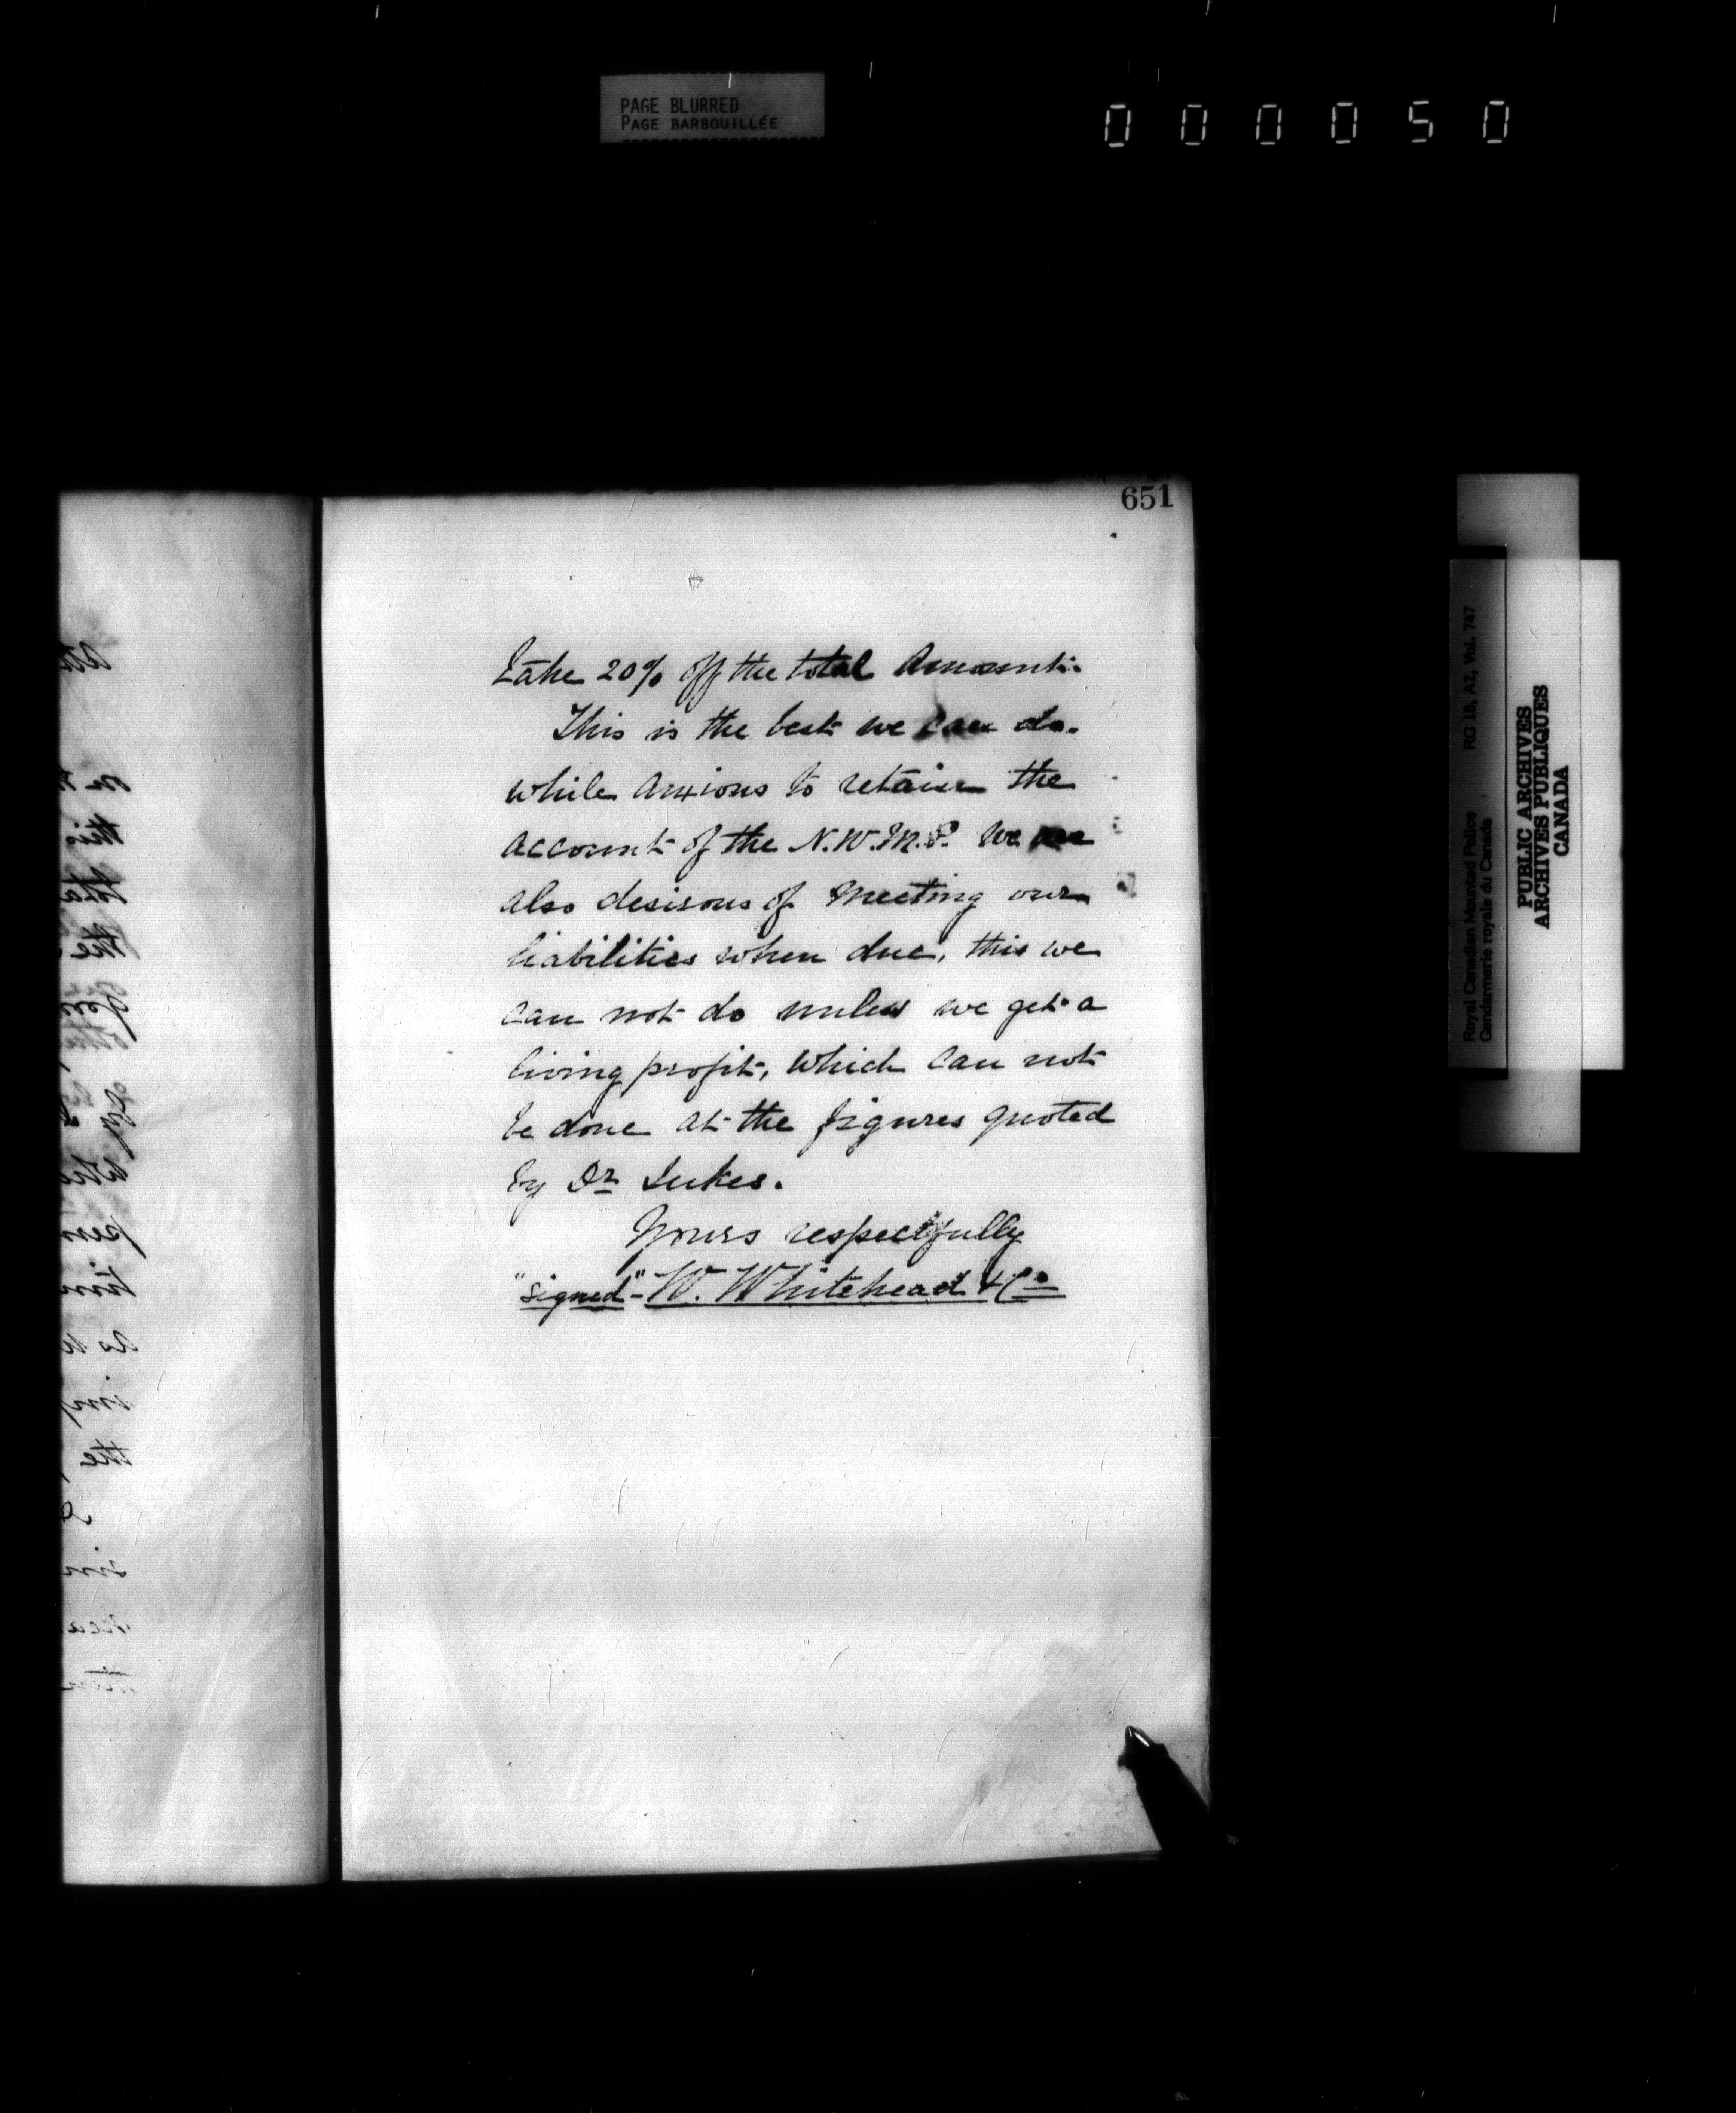 PAGE BLURRED
PAGE BARBOUILLÉE
000050
651
take 20% off the total amount.
This is the best we can do.
while anxious to retain the
account of the N.W.M.P. we are
also desirous of meeting our
liabilities when due, this we
can not do unless we get a
living profit, which can not
be done at the figures quoted
by Dr Jukes.
Yours respectfully
"signed" - W. Whitehead & Co
Royal Canadian Mounted Police RG 18, A2, Vol. 747
Gendarmerie royale du Canada
PUBLIC ARCHIVES
ARCHIVES PUBLIQUES
CANADA